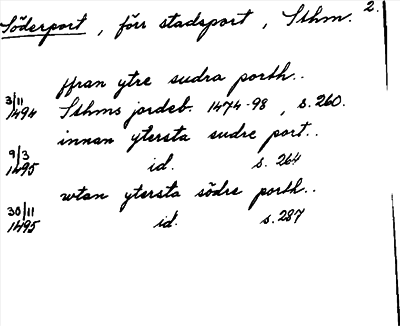 Söderport, förr stadsport, Sthm. 2.
ffran ytre sudra porth..
3/11 1494 Sthms jordeb. 1474-98, s. 260.
innan ytersta sudre port..
9/3 1495 id. s. 264
wtan ytersta södre porth..
30/11 1495 id. s. 287